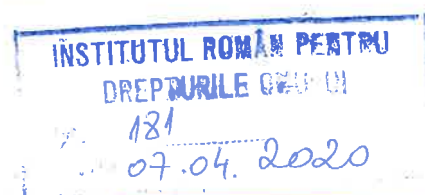 INSTITUTUL ROMÂN PENTRU
DREPTURILE OMULUI
181
07.04. 2020